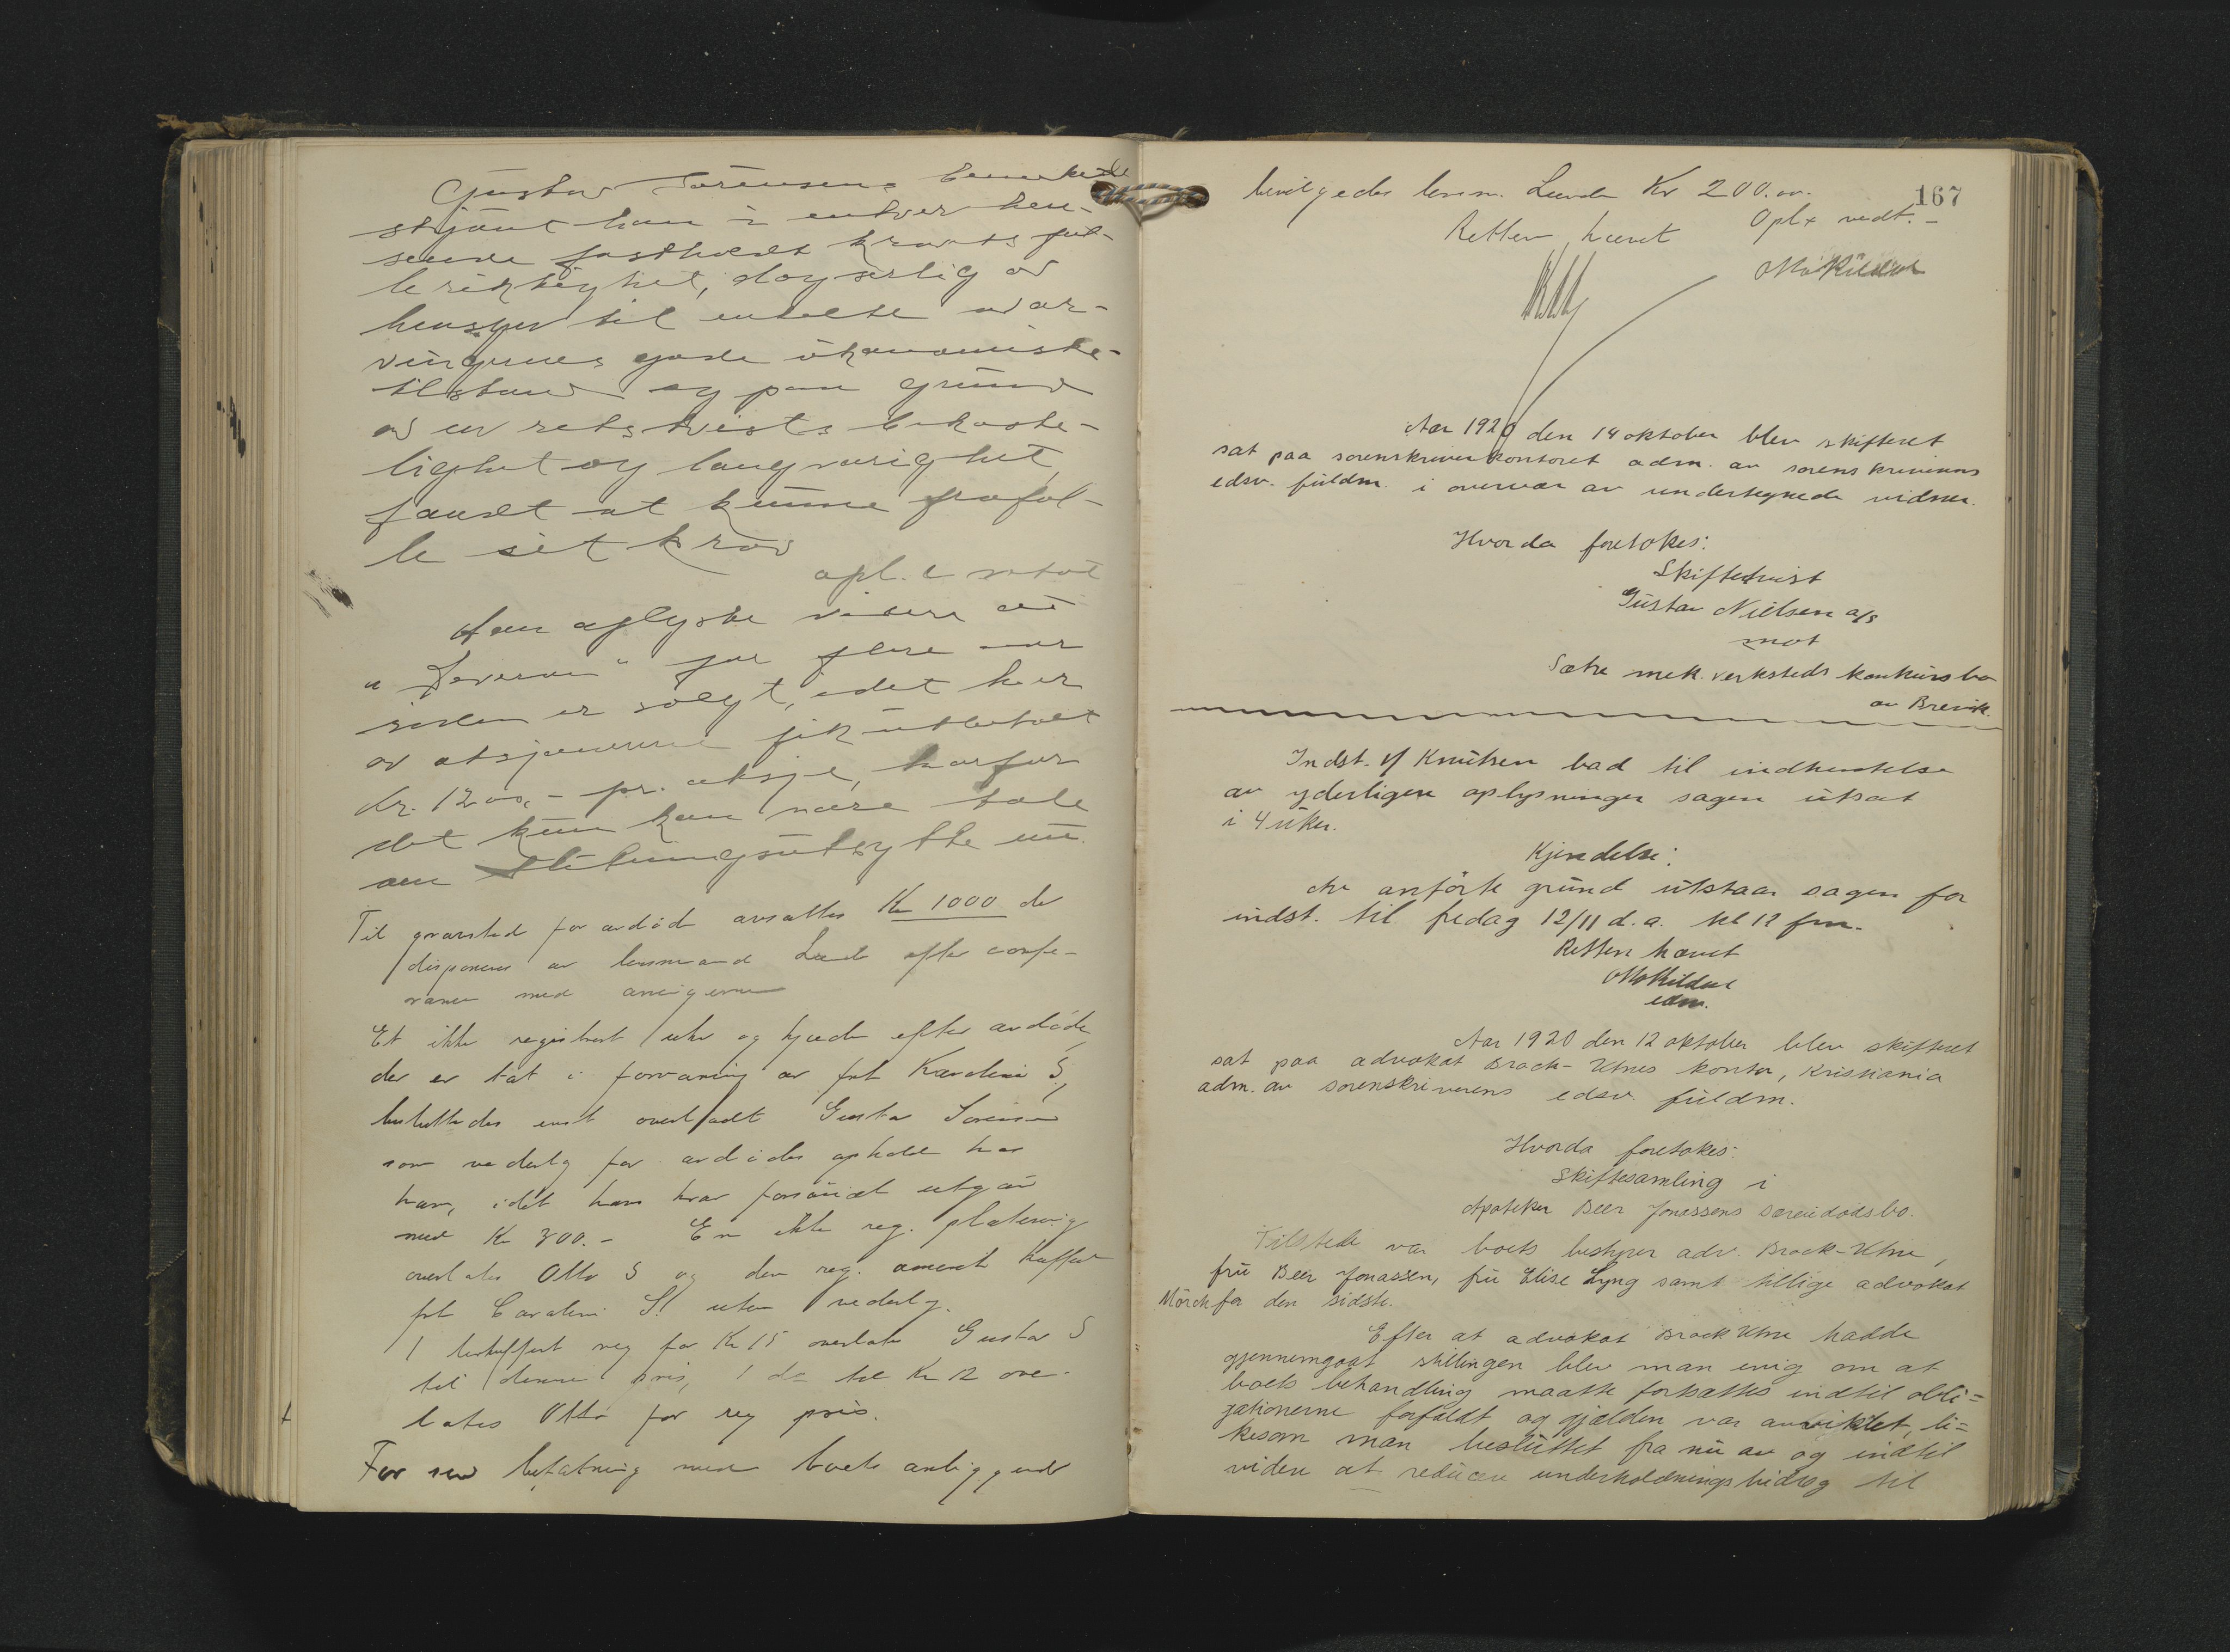 Gustav Sörensen bemerkede
skjönt han i enhver hen-
seende fastholdt kravets ful-
le rigtighet, dog særlig av
hensyn til enkelte av ar-
vingernes gode ökonomiske
tilstand og paa grund
av en retstvists bekoste-
lighet og langvarighet,
fandt at kunne frafal-
le sit krav
opl. & vedtat
Han oplyste videre at
" " for flere aar
siden er solgt, idet hver
av aksjonærerne fik utbetalt
kr. 1200,- pr. aksje, hvorfor
det kun kan være tale
om slutningsutbytte nu.
Til gravsted for avdöde avsattes Kr 1000 der
disponeres av lensmand Lunde efter confe-
rance med arvingerne
Et ikke registrert uhr og kjede efter avdöde,
der er tat i forvaring av frk Karoline S.,
besluttedes overladt Gustav Sörensen
som vederlag for avdödes ophold hos
ham, idet hans krav forövrigt utgaar
med Kr 300.- En ikke reg.
overlates Otto S og den reg. kuffert
frk Caroline S. uten vederlag.
1 reg for Kr 15 overlates Gustav S
til denne pris, 1 do til Kr 12 over-
lates Otto for reg pris.
For sin befatning med boets anliggender
167
bevilgedes lensm. Lunde Kr 200.00.
Opl & vedt.-
Retten hævet
Aar 1920 den 14 oktober blev skifteret
sat paa sorenskriverkontoret adm. av sorenskriverens
edsv. fuldm. i overvær av undertegnede vidner.
Hvorda foretokes:
Skiftetvist
Gustav Nielsen a/s
mot
Sætre mek. verksteds konkursbo
av Brevik.
Indst. v/ Knutsen bad til indhentelse
av yderligere oplysninger sagen utsat
i 4 uker.
Kjendelse:
Av anförte grund utstaar sagen for
indst. til fredag 12/11 d.a. kl 12 fm.
Retten hævet
Otto Kildal
edsv.
Aar 1920 den 12 oktober blev skifteret
sat paa advokat Brock-Utnes kontor, Kristiania
adm. av sorenskriverens edsv. fuldm.
Hvorda foretokes:
Skiftesamling i
Apoteker Beer Jonassens særeiedödsbo.
Tilstede var boets bestyrer adv. Brock-Utne,
fru Beer Jonassen, fru Elise Lyng samt tillige advokat
Mörch for den sidste.
Efter at advokat Brock Utne hadde
gjennemgaat stillingen blev man enig om at
boets behandling maatte fortsættes indtil obli=
gationerne forfaldt og gjælden var avviklet, li=
kesom man besluttet fra nu av og indtil
videre at reducere underholdningsbidrag til